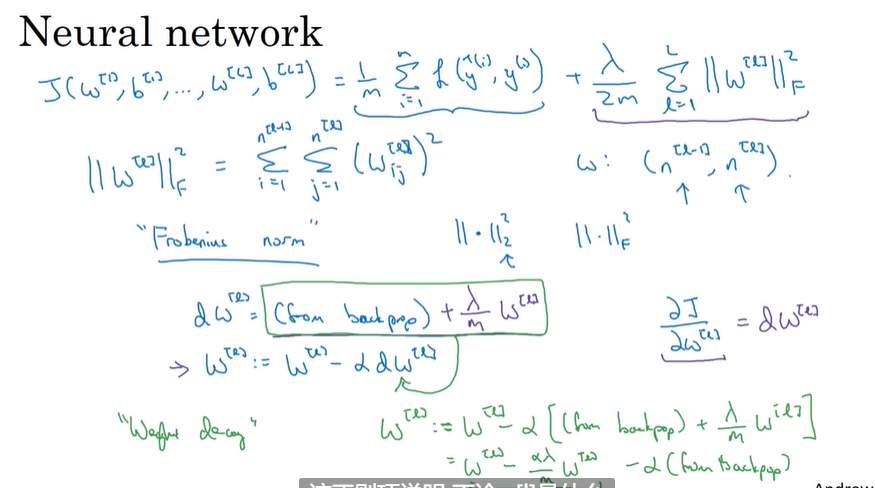 Neural network
J(ω^[1], b^[1], ..., ω^[L], b^[L]) = 1/m Σ_{i=1}^{m} ℒ(ŷ^(i), y^(i)) + λ/2m Σ_{l=1}^{L} ||ω^[l]||²_F
||ω^[l]||²_F = Σ_{i=1}^{n^[l-1]} Σ_{j=1}^{n^[l]} (ω_ij^[l])² ω: (n^[l-1], n^[l]).
"Frobenius norm" ||·||²_2 ||·||²_F
dω^[l] = (from backprop) + λ/m ω^[l] ∂J/∂ω^[l] = dω^[l]
→ ω^[l] := ω^[l] - α dω^[l]
"Weight decay" ω^[l] := ω^[l] - α [(from backprop) + λ/m ω^[l]]
= ω^[l] - αλ/m ω^[l] - α (from backprop)
Andrew